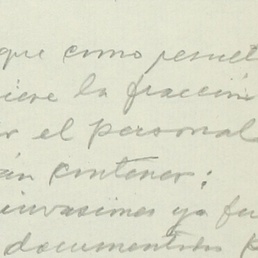 que como result
iere la fracción
r el personal
án contener:
invasiones ya fu
documentos p